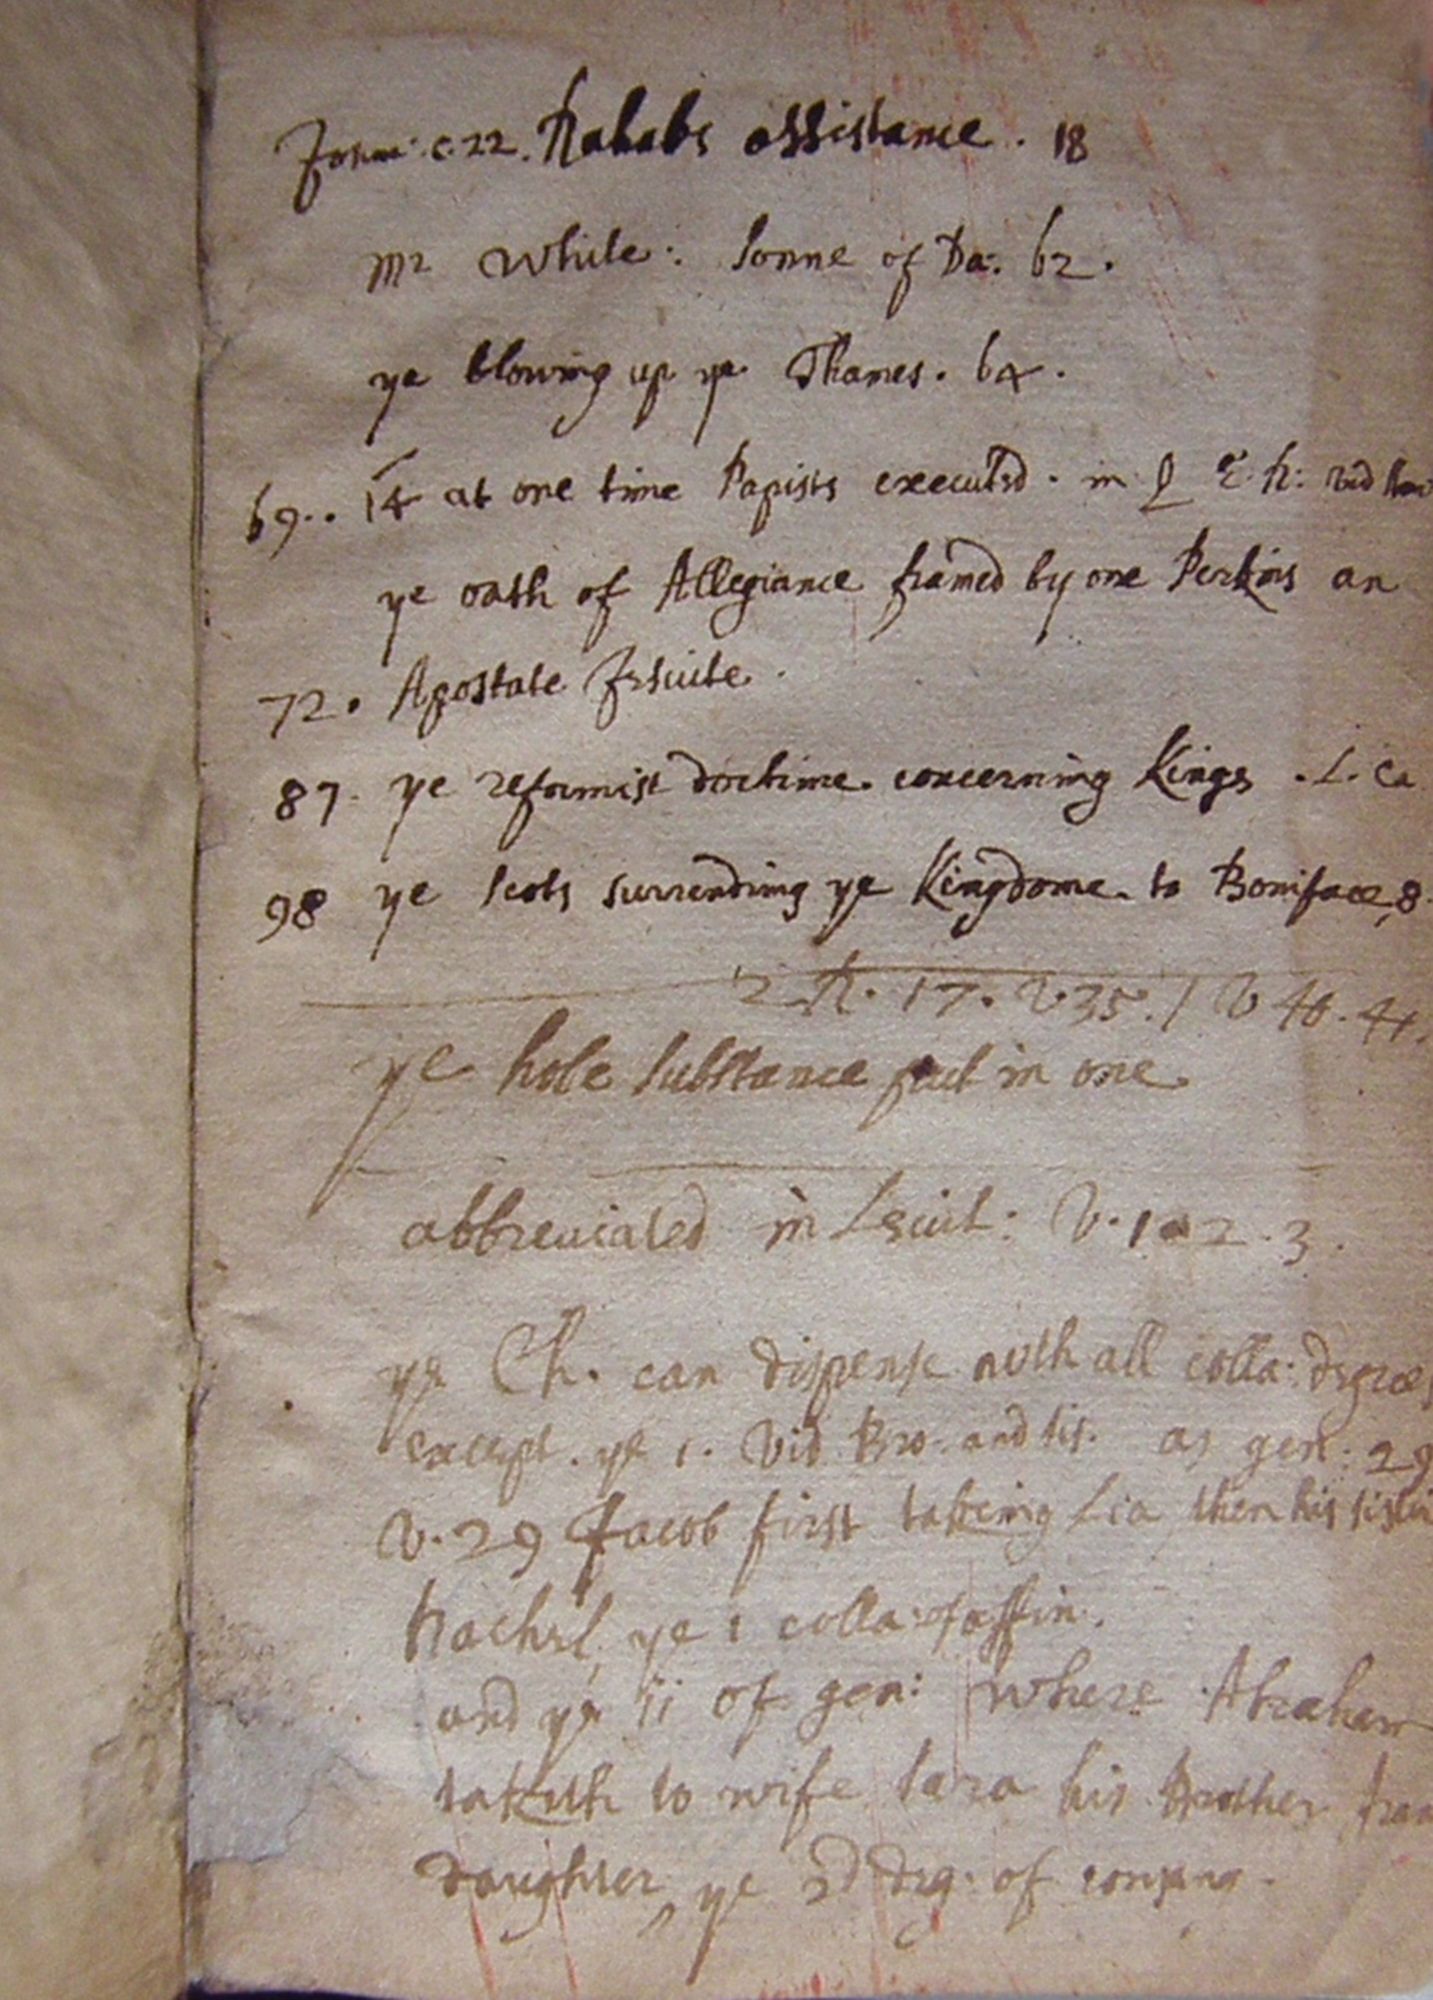 c. 22. Rahabs assistance. 18
Mr White: sonne of Da: 62.
ye blowing up ye Thames. 64.
69.. 14 at one time Papists executed. in Q E. R: vid
ye oath of Allegiance framed by one Perkins an
72. Apostate Jesuite.
87. ye reformist doctrine concerning Kings . L. Ca
98 ye scots surrending ye Kingdome. to Boniface, 8.
2 R. 17. V 35. / V 40. 41.
ye hole substance put in one
abbreviated in Levit: V. 1 2. 3.
ye Ch. can dispense with all colla: degrees
except. ye 1. vid Bro. and sis. as gen: 29
V. 29 Jacob first takeing Lia then his sister
Rachel, ye 1 colla: of affin.
and ye 11 of gen: where Abraham
taketh to wife Sara his Brother
daughter, ye 2d deg: of consang.